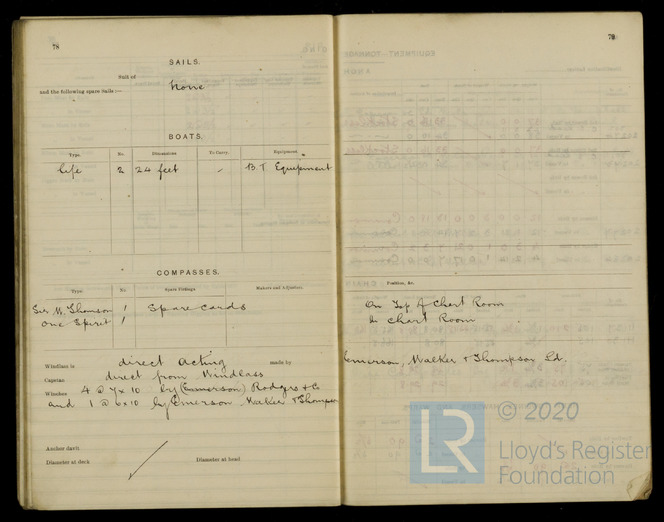 78
SAILS.
Suit of
None
and the following spare Sails:—
BOATS.
Type. No. Dimensions To Carry. Equipment.
life 2 24 feet B.T Equipment
COMPASSES.
Type. No. Spare Fittings Makers and Adjusters.
Sir W. Thomson 1 Spare cards
One Spirit 1
Windlass is direct acting made by
Capstan direct from Windlass
Winches 4 @ 7 x 10 by (Emmerson) Rodgers & Co
and 1 @ 6 x 10 by Emerson Walker & Thompson
Anchor davit
Diameter at deck Diameter at head
79
Position, &c.
On Top of Chart Room
In Chart Room
Emerson, Walker & Thompson Ld.
LR © 2020
Lloyd's Register
Foundation